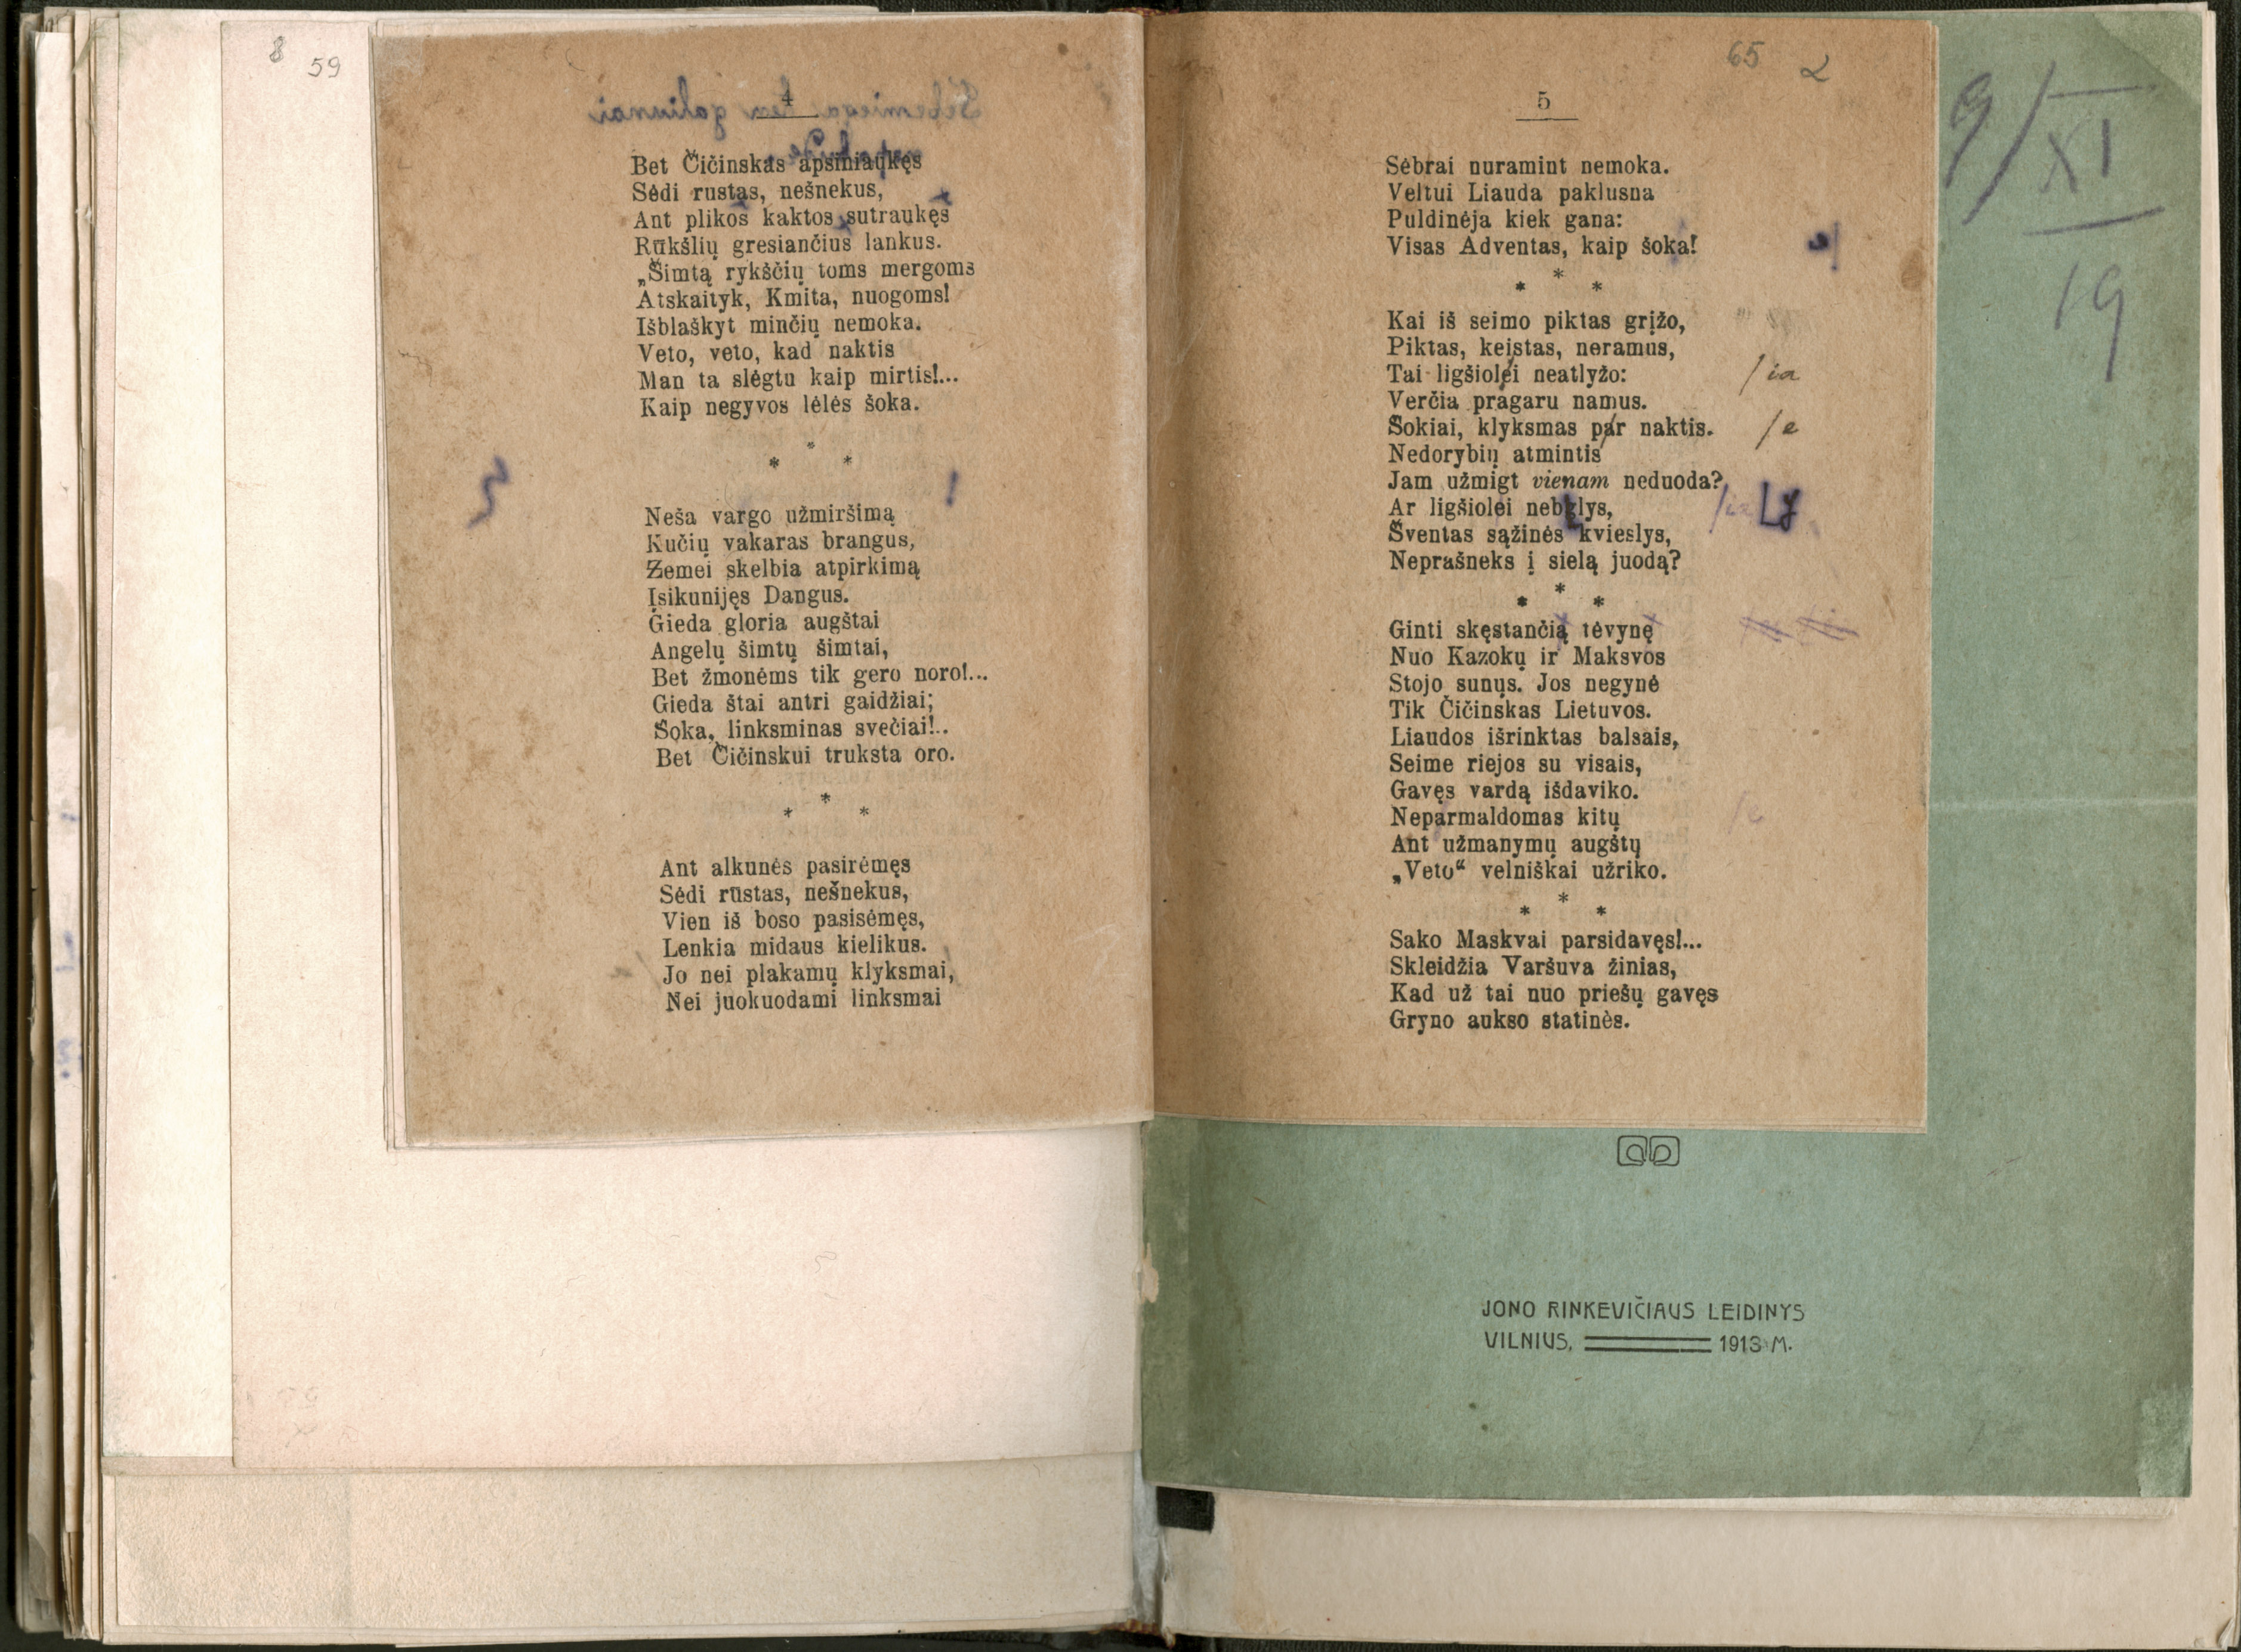 8 59
4
Bet Čičinskas apsiniaukęs
Sėdi rustas, nešnekus,
Ant plikos kaktos sutraukęs
Rūkšlių gresiančius lankus.
„Šimtą rykščių toms mergoms
Atskaityk, Kmita, nuogoms!
Išblaškyt minčių nemoka.
Veto, veto, kad naktis
Man ta slėgtu kaip mirtis!...
Kaip negyvos lėlės šoka.
* * *
Neša vargo užmiršimą
Kučių vakaras brangus,
Žemei skelbia atpirkimą
Įsikunijęs Dangus.
Gieda gloria augštai
Angelų šimtų šimtai,
Bet žmonėms tik gero noro!...
Gieda štai antri gaidžiai;
Šoka, linksminas svečiai!..
Bet Čičinskui truksta oro.
* * *
Ant alkunės pasirėmęs
Sėdi rūstas, nešnekus,
Vien iš boso pasisėmęs,
Lenkia midaus kielikus.
Jo nei plakamų klyksmai,
Nei juokuodami linksmai
65 2
5
Sėbrai nuramint nemoka.
Veltui Liauda paklusna
Puldinėja kiek gana:
Visas Adventas, kaip šoka!
* * *
Kai iš seimo piktas grįžo,
Piktas, keistas, neramus,
Tai ligšiolei neatlyžo: /ia
Verčia pragaru namus.
Šokiai, klyksmas par naktis. /e
Nedorybių atmintis
Jam užmigt vienam neduoda?
Ar ligšiolei nebylys,
Šventas sąžinės kvieslys,
Neprašneks į sielą juodą?
* * *
Ginti skęstančią tėvynę
Nuo Kazokų ir Maksvos
Stojo sunųs. Jos negynė
Tik Čičinskas Lietuvos.
Liaudos išrinktas balsais,
Seime riejos su visais,
Gavęs vardą išdaviko.
Neparmaldomas kitų /e
Ant užmanymų augštų
„Veto“ velniškai užriko.
* * *
Sako Maskvai parsidavęs!...
Skleidžia Varšuva žinias,
Kad už tai nuo priešų gavęs
Gryno aukso statinės.
9/XI
19
JONO RINKEVIČIAUS LEIDINYS
VILNIUS, 1913 M.